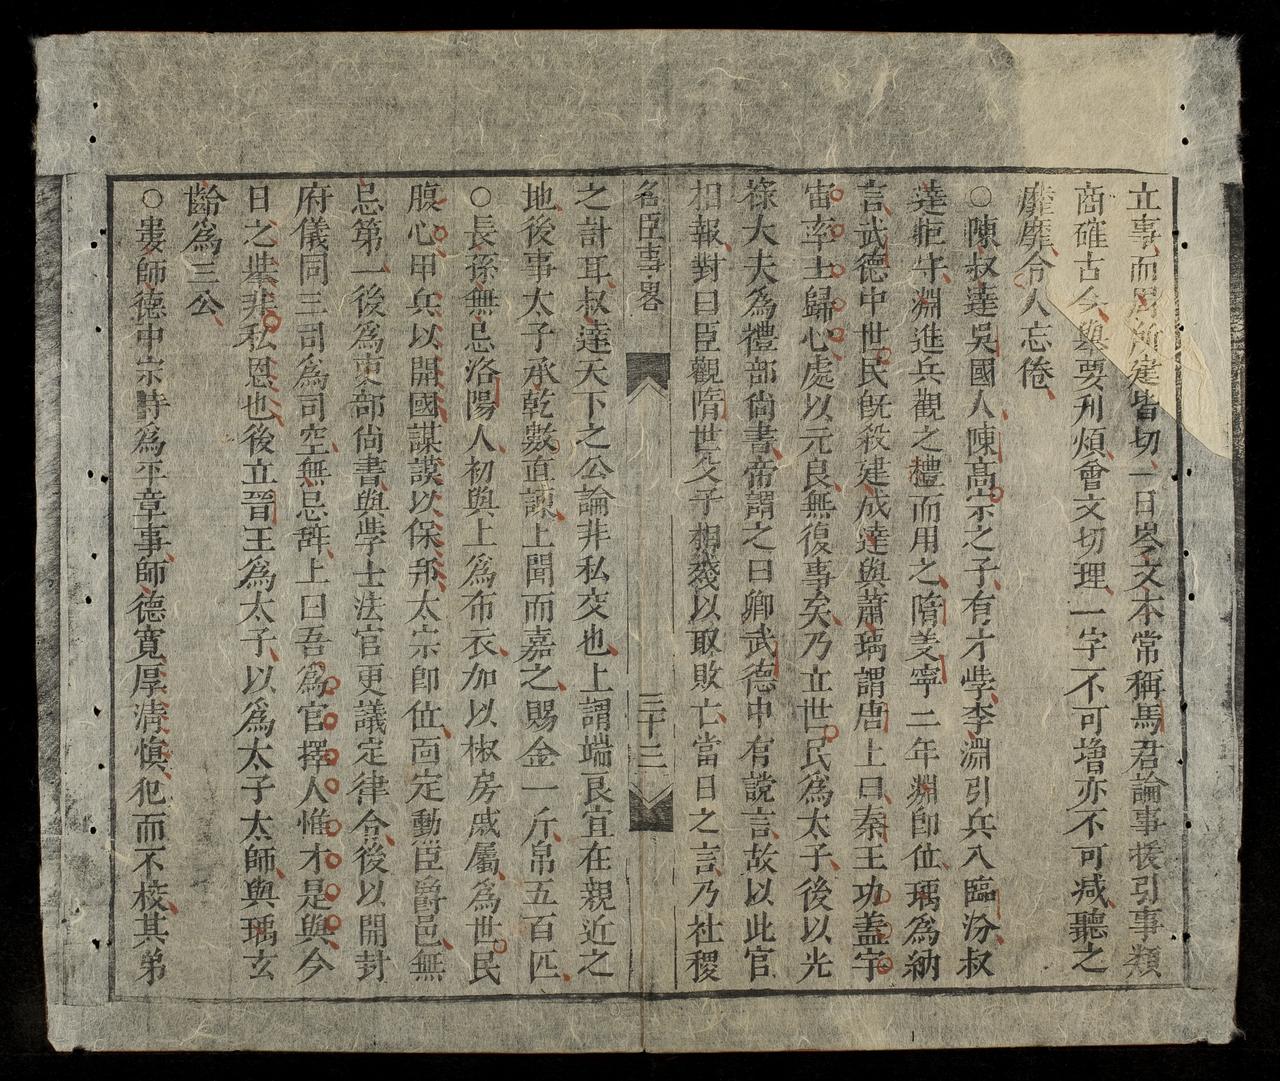 立事而周所建皆切一日岑文本常稱馬君論事援引事類
商確古今舉要刋煩會文切理一字不可增亦不可减聽之
靡靡令人忘倦
○陳叔達吳國人陳高宗之子有才學李淵引兵入臨汾叔
達拒守淵進兵觀之禮而用之隋義寧二年淵卽位瑀爲納
言武德中世民旣殺建成達與蕭瑀謂唐上曰秦王功蓋宇
宙率土歸心處以元良無復事矣乃立世民爲太子後以光
祿大夫爲禮部尙書帝謂之曰卿武德中有讜言故以此官
相報對曰臣觀隋世父子相殘以取敗亡當日之言乃社稷
名臣事畧 三十三
之計耳叔達天下之公論非私交也上謂端良宜在親近之
地後事太子承乾數直諫上聞而嘉之賜金一斤帛五百匹
○長孫無忌洛陽人初與上爲布衣加以椒房戚屬爲世民
腹心甲兵以開國謀謨以保邦太宗卽位面定勳臣爵邑無
忌第一後爲吏部尙書與學士法官更議定律令後以開封
府儀同三司爲司空無忌辭上曰吾爲官擇人惟才是與今
日之擧非私恩也後立晉王爲太子以爲太子太師與瑀玄
齡爲三公
○婁師德中宗時爲平章事師德寬厚淸愼犯而不校其弟